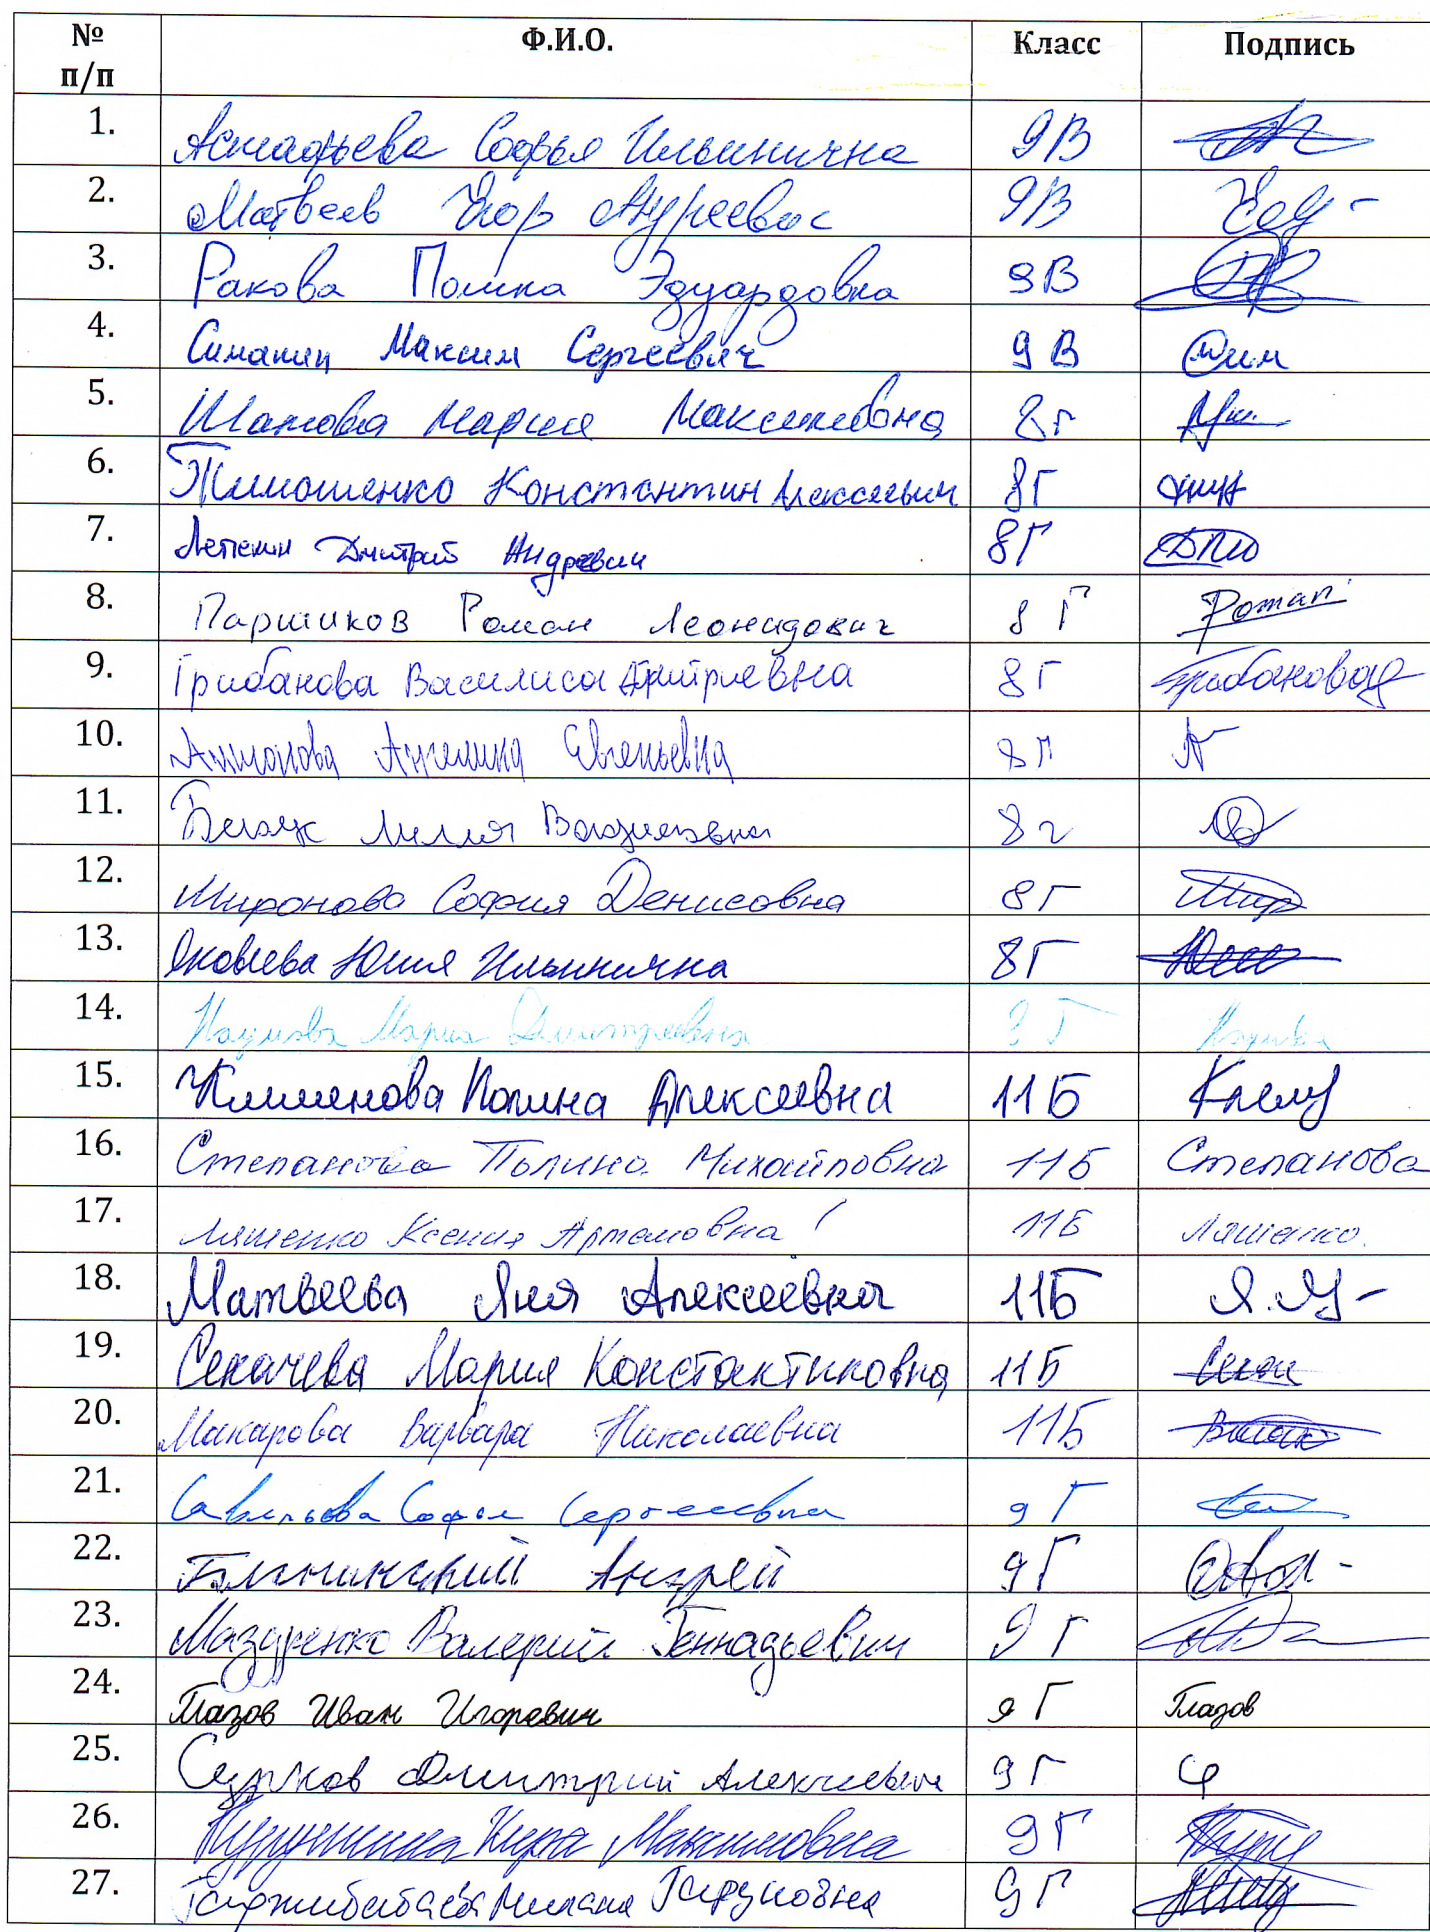 № п/п Ф.И.О. Класс Подпись
1. Астафьева Софья Ильинична 9В
2. Матвеев Егор Андреевич 9В
3. Ракова Полина Эдуардовна 9В
4. Симанин Максим Сергеевич 9В Сим
5. Шамова Мария Максимовна 8г
6. Тимошенко Константин Алексеевич 8Г
7. Лепехин Дмитрий Андреевич 8Г
8. Паршиков Роман Леонидович 8 Г Роман
9. Грибанова Василиса Дмитриевна 8Г Грибанова
10. Антонова Ангелина Евгеньевна 8Г
11. Лилия 8г
12. Миронова София Денисовна 8Г Мир
13. Яковлева Юлия Ильинична 8Г
14. Наумова Мария Дмитриевна 8Г
15. Клименова Полина Алексеевна 11Б Клем
16. Степанова Полина Михайловна 11Б Степанова
17. Ляшенко Ксения Артемовна 11Б Ляшенко
18. Матвеева Яна Алексеевна 11Б Я.М-
19. Секачева Мария Константиновна 11Б
20. Макарова Варвара Николаевна 11Б
21. Савельева Софья Сергеевна 9 Г
22. Андрей 9Г
23. Мазуренко Валерий Геннадьевич 9 Г
24. Глазов Иван Игоревич 9 Г Глазов
25. Сурков Дмитрий Алексеевич 9Г
26. Кира Максимовна 9Г
27. Милана 9Г